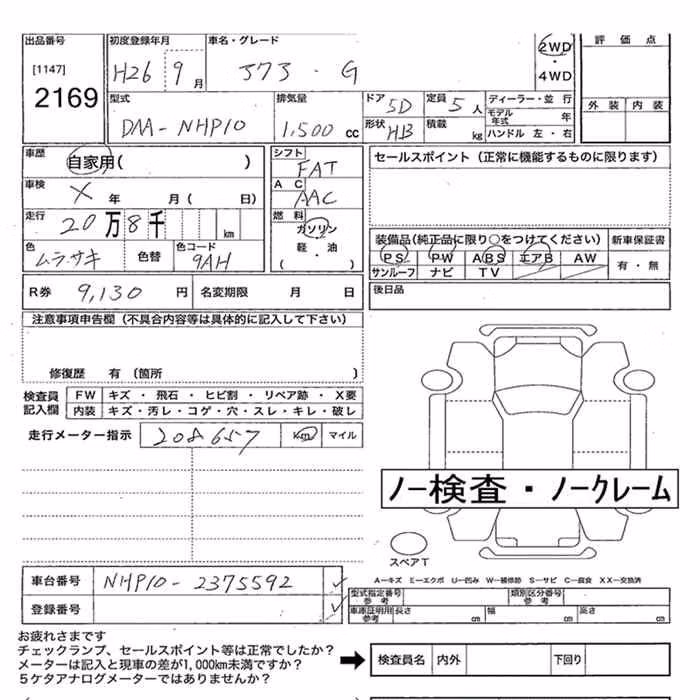 出品番号 初度登録年月 車名・グレード 2WD ・ 4WD 評価点
[1147] 2169 H26 9月 アクア・G
外装 内装
型式 DAA-NHP10 排気量 1,500cc ドア 5D 定員 5人 ディーラー・並行
形状 HB 積載 kg モデル年式 年
ハンドル 左・右
車歴 自家用( ) シフト FAT セールスポイント(正常に機能するものに限ります)
車検 X 年 月( 日) AC AAC
走行 20万8千 km 燃料 ガソリン 軽・油 ( )
色 ムラサキ 色替 色コード 9AH
装備品(純正品に限り○をつけてください) 新車保証書
PS PW ABS エアB AW 有・無
サンルーフ ナビ TV
R券 9,130円 名変期限 月 日 後日品
注意事項申告欄(不具合内容等は具体的に記入して下さい)
修復歴 有 (箇所
検査員記入欄 FW キズ・飛石・ヒビ割・リペア跡・X要
内装 キズ・汚レ・コゲ・穴・スレ・キレ・破レ
走行メーター指示 208657 km マイル
ノー検査・ノークレーム
スペアT
A-キズ E-エクボ U-凹み W-補修跡 S-サビ C-腐食 XX-交換済
車台番号 NHP10-2375592
登録番号
型式指定番号 参考 類別区分番号 参考
車庫証明用 参考 長さ cm 幅 cm 高さ cm
お疲れさまです
チェックランプ、セールスポイント等は正常でしたか?
メーターは記入と現車の差が1,000km未満ですか?
5ケタアナログメーターではありませんか?
検査員名 内外 下回り